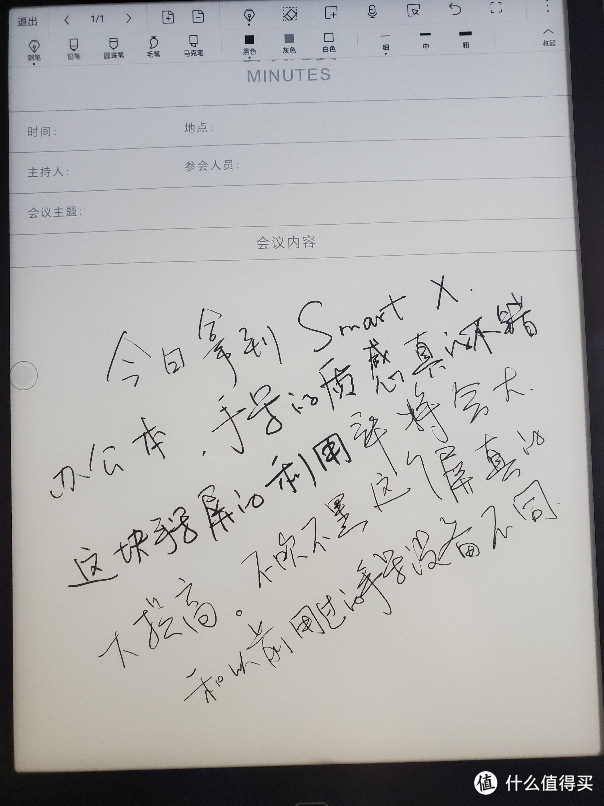 退出 1/1
钢笔 铅笔 圆珠笔 毛笔 马克笔 黑色 灰色 白色 细 中 粗 收起
MINUTES
时间: 地点:
主持人: 参会人员:
会议主题:
会议内容
今日拿到 Smart X.
办公本,手写的质感真的不错
这块手写屏的利用率将会大
大提高。不吹不黑这个屏真的
和以前用过的手写设备不同.
值 什么值得买